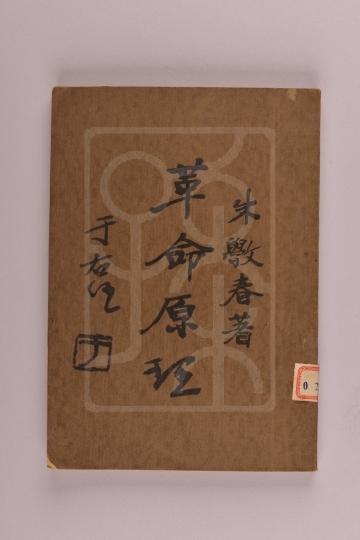 朱斆春著
革命原理
于右任
0